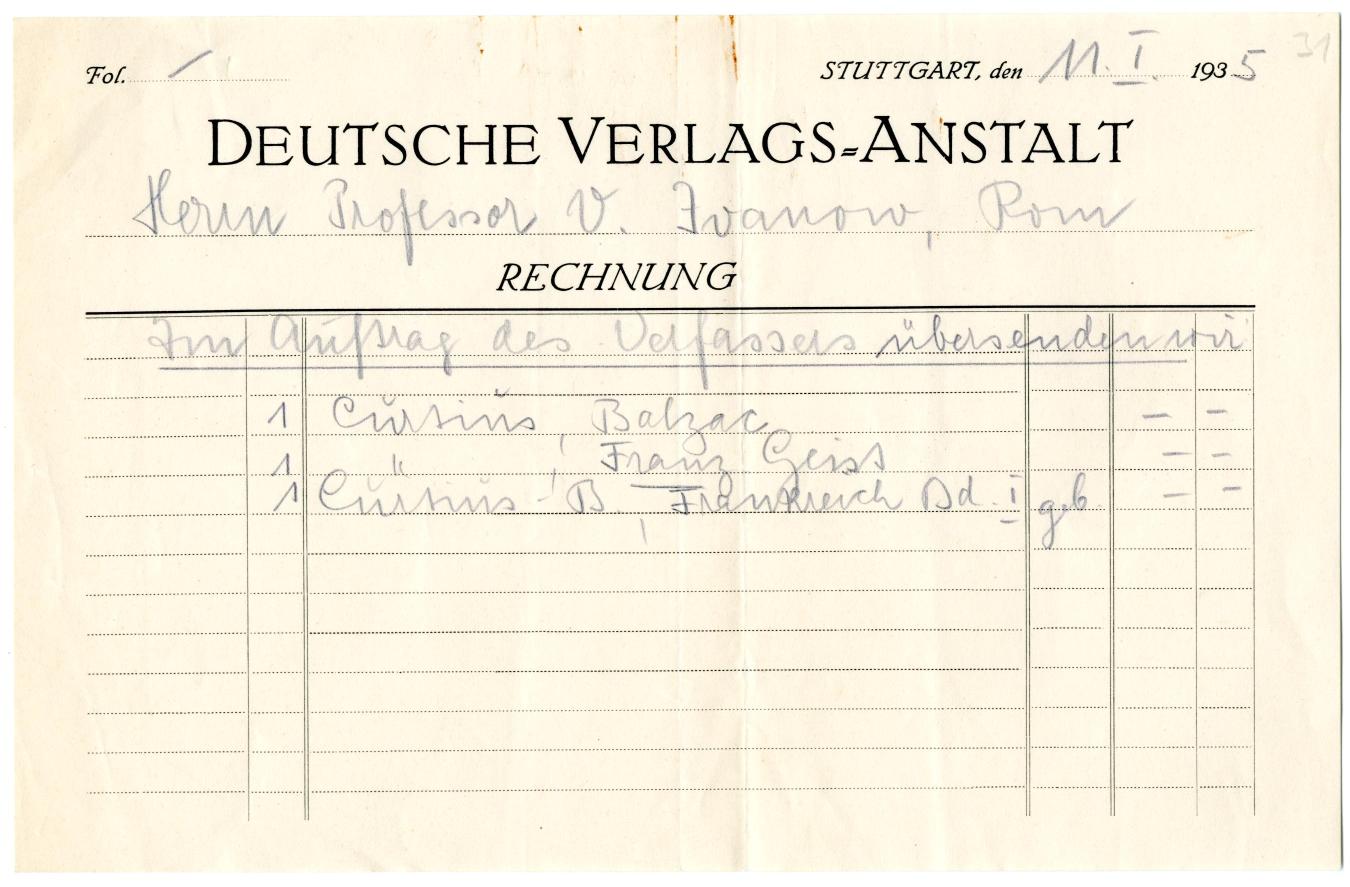 Fol. /
STUTTGART, den 11. I. 1935 31
DEUTSCHE VERLAGS=ANSTALT
Herrn Professor V. Ivanow, Rom
RECHNUNG
Im Auftrag des Verfassers übersenden wir
1 Curtius, Balzac — —
1 " , Franz Geist — —
1 Curtius-B., Frankreich Bd. I geb. — —